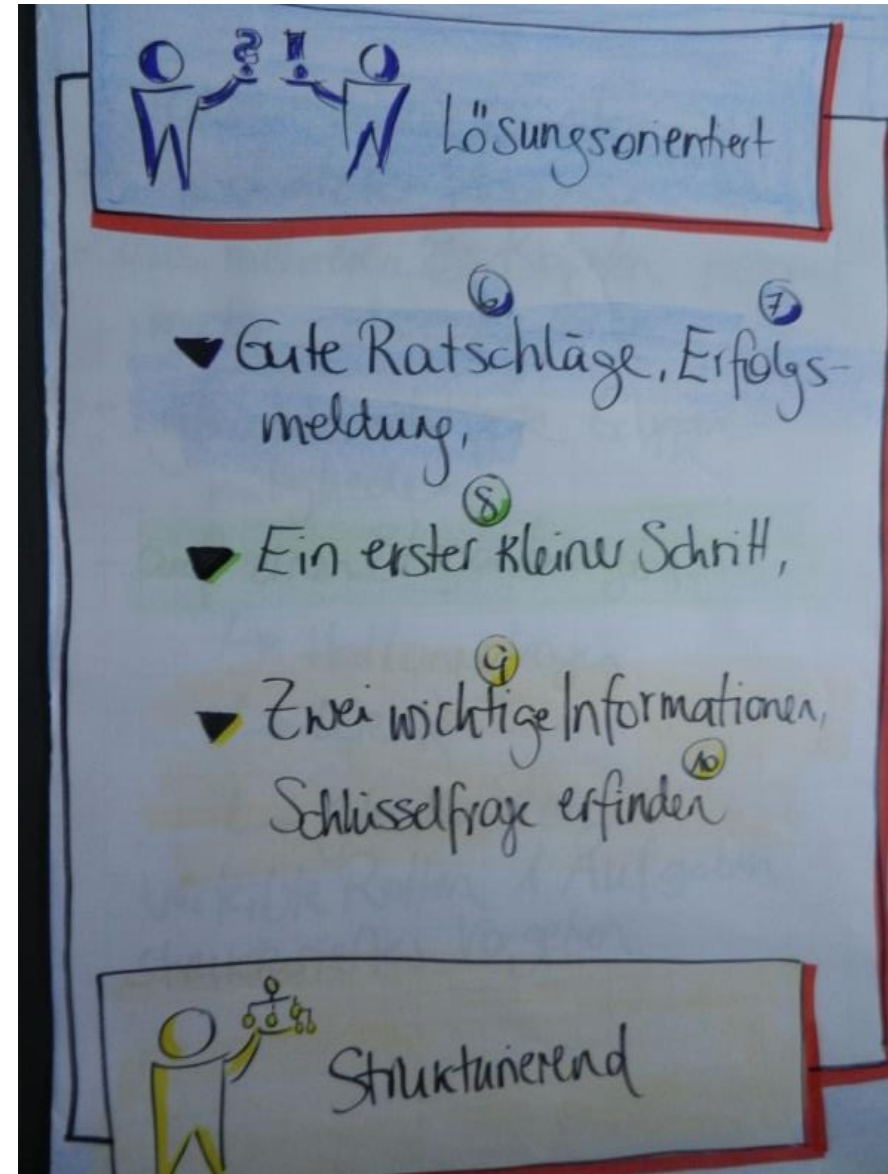 ? !
Lösungsorientiert
6 7
Gute Ratschläge, Erfolgs-
meldung,
8
Ein erster kleiner Schritt,
9
Zwei wichtige Informationen,
Schlüsselfrage erfinden 10
Strukturierend